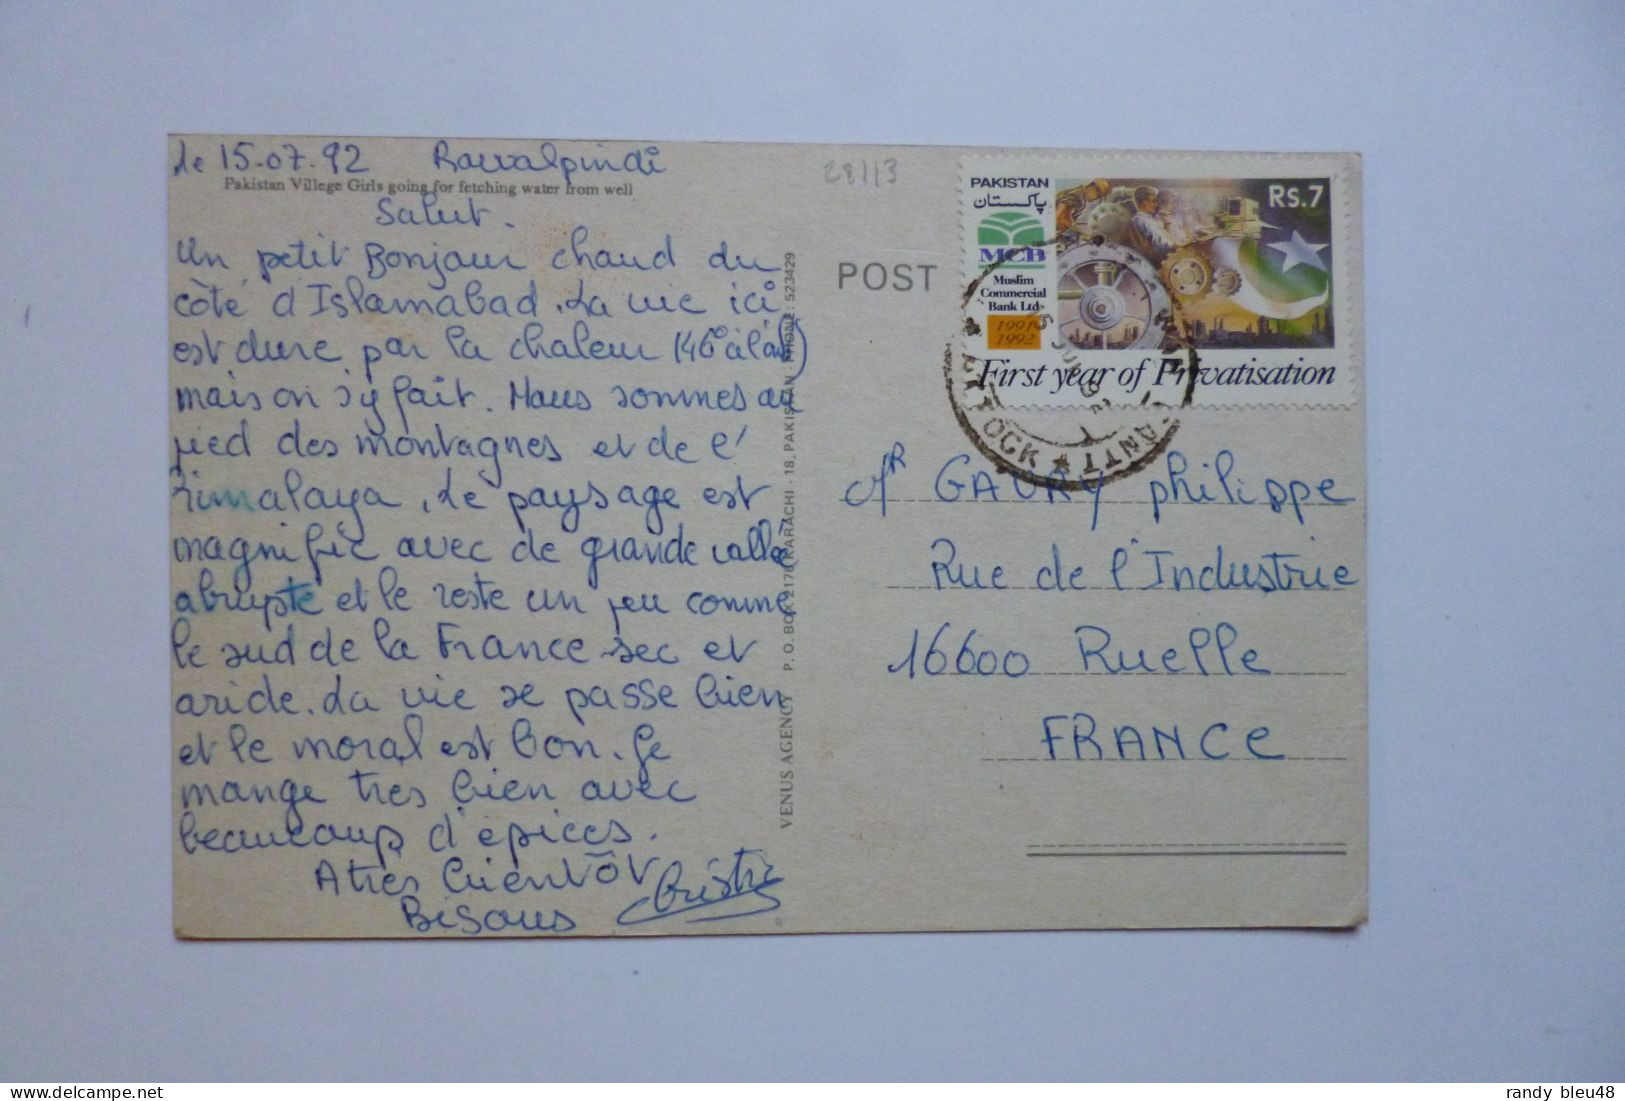 le 15-07-92 Rawalpindi
Pakistan Villege Girls going for fetching water from well
Salut.
Un petit Bonjour chaud du
côté d'Islamabad. La vie ici
est dure par la chaleur (46° à l'
mais on s'y fait. Nous sommes au
pied des montagnes et de l'
himalaya, le paysage est
magnific avec de grande vallé
abrupte et le reste un peu comme
le sud de la France sec et
aride. La vie se passe bien
et le moral est bon. Je
mange tres bien avec
beaucoup d'épices.
A tres bientôt
Bisous
VENUS AGENCY P. O. BOX 2176 KARACHI - 18, PAKISTAN PHONE: 523429
28113
POST
PAKISTAN
پاکستان
MCB
Muslim
Commercial
Bank Ltd
1991
1992
Rs.7
First year of Privatisation
ATTOCK
CANTT
Mr GAURY philippe
Rue de l'Industrie
16600 Ruelle
FRANCE
randy_bleu48